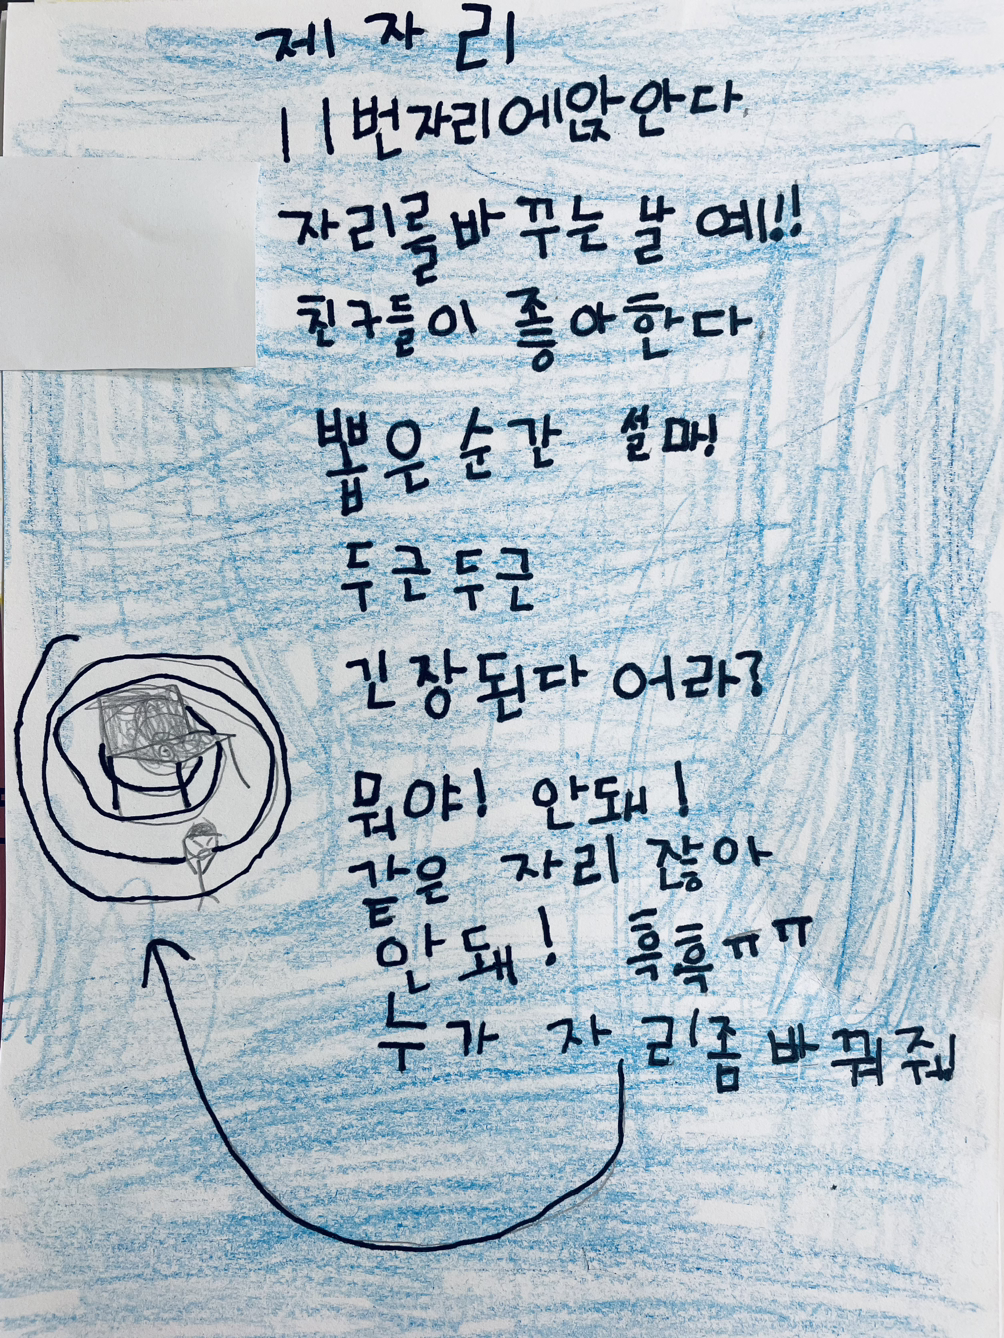 제 자 리
11번자리에앉안다.
자리를바꾸는 날 예!!
친구들이 좋아한다.
뽑은순간 설마!
두근두근
긴장된다 어라?
뭐야! 안돼!
같은 자리 잖아
안돼! 흑흑ㅠㅠ
누가 자리좀바꿔줘